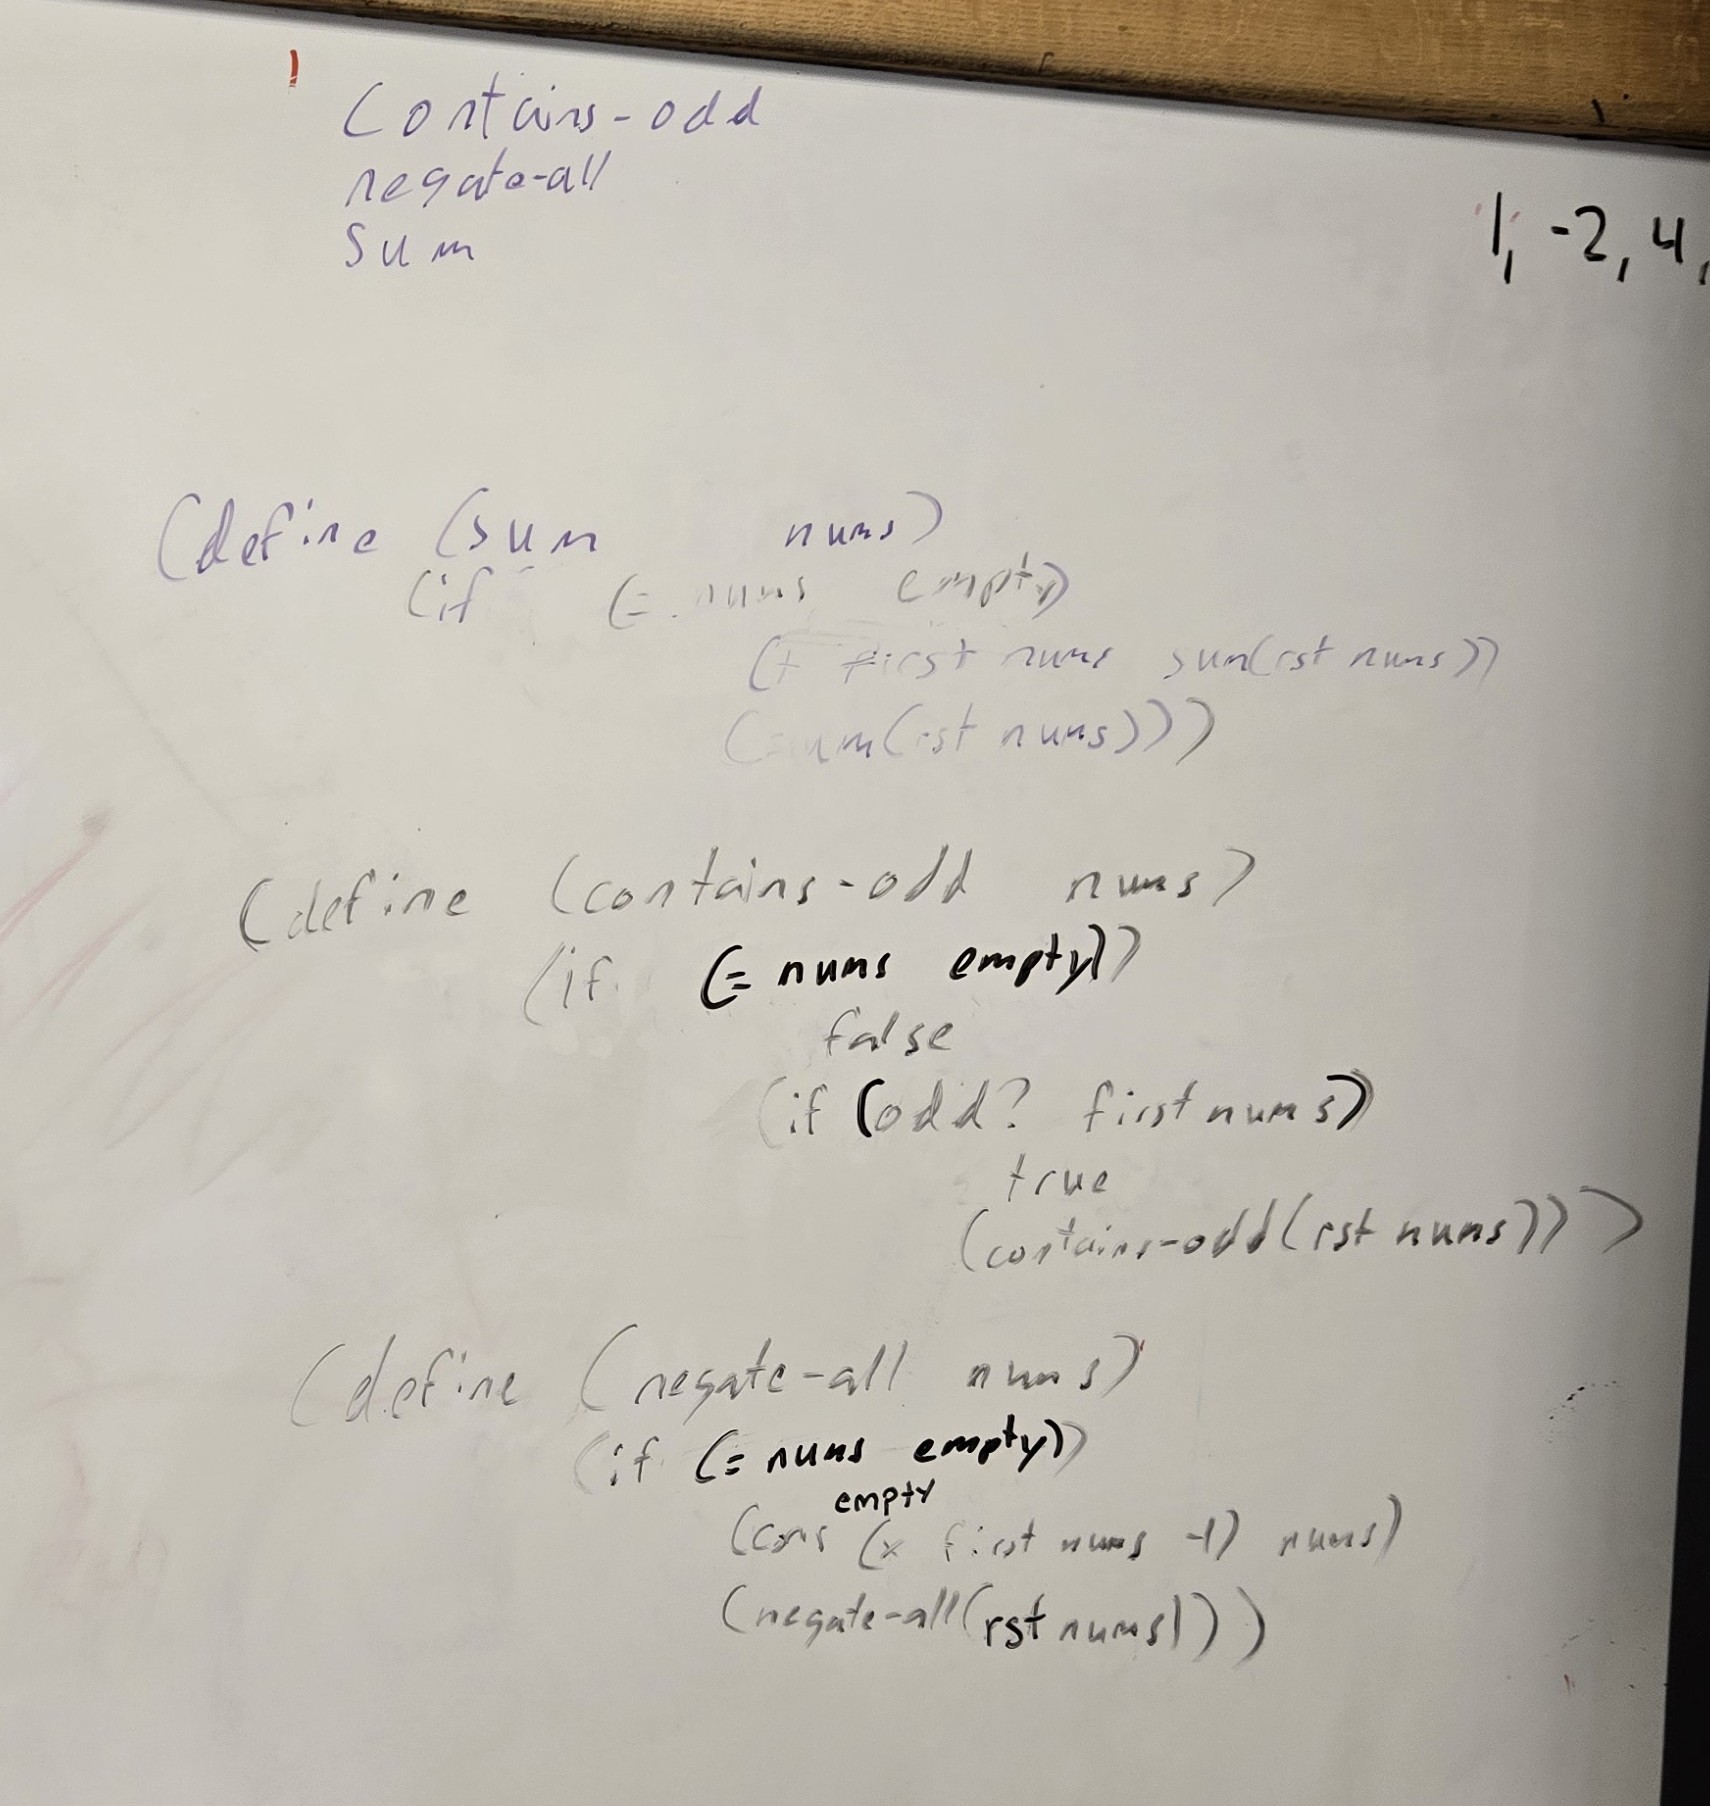 Contains-odd
negate-all
Sum
1, -2, 4,
(define (sum nums)
(if (= nums empty)
(+ first nums sum(rst nums))
(sum(rst nums)))
(define (contains-odd nums)
(if (= nums empty))
false
(if (odd? first nums))
true
(contains-odd(rst nums)))
(define (negate-all nums)
(if (= nums empty))
empty
(cons (x first nums -1) nums)
(negate-all(rst nums)))